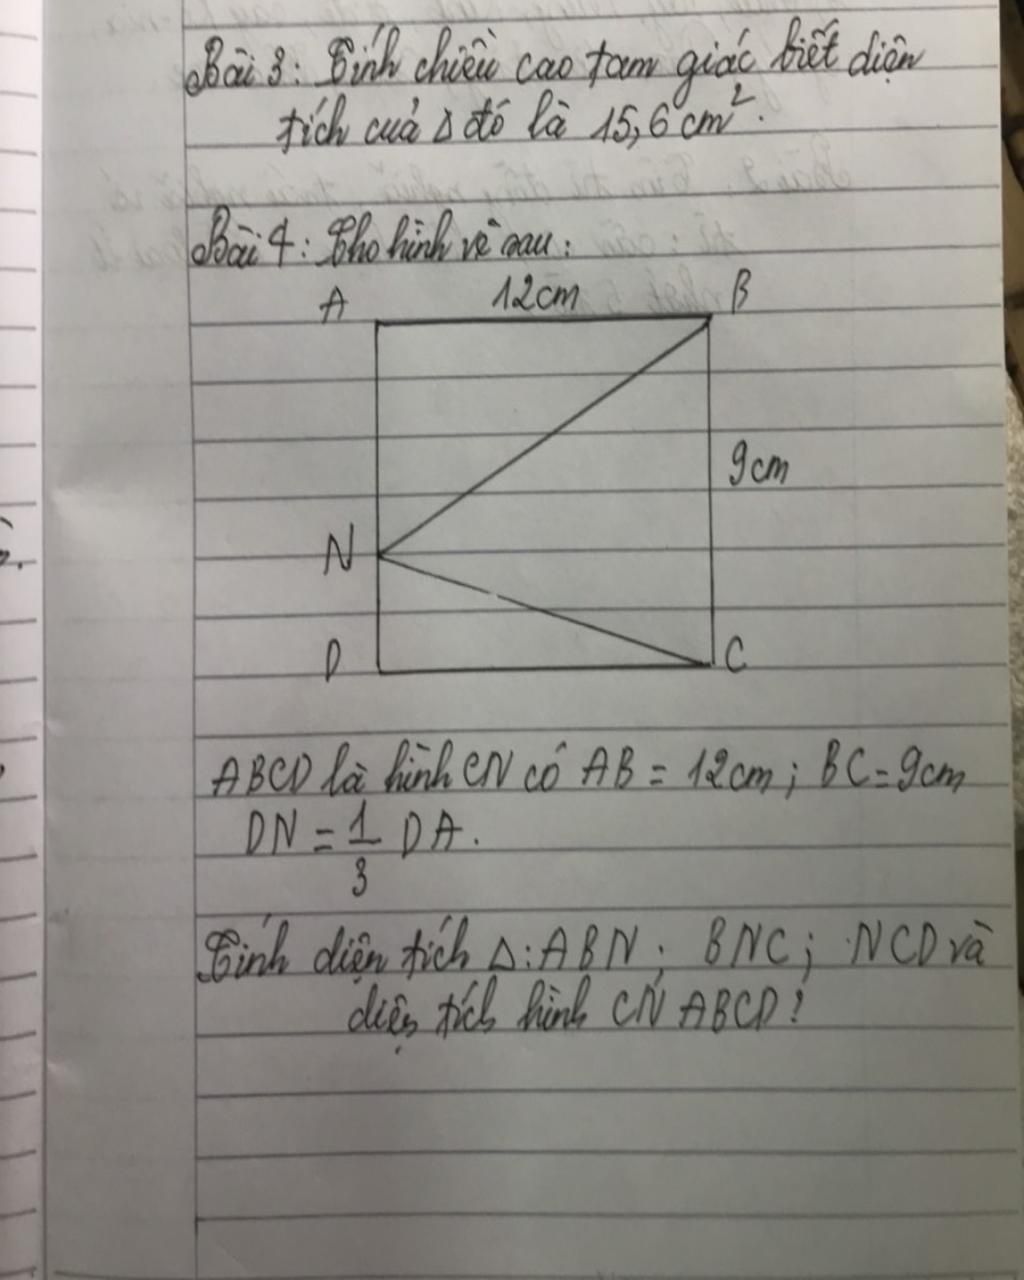 Bài 3: Tính chiều cao tam giác biết diện
tích của Δ đó là 15,6 cm².
Bài 4: Cho hình vẽ sau:
A 12cm B
9cm
N
D C
ABCD là hình CN có AB = 12cm; BC = 9cm
DN = 1/3 DA.
Tính diện tích Δ: ABN; BNC; NCD và
diện tích hình CN ABCD?